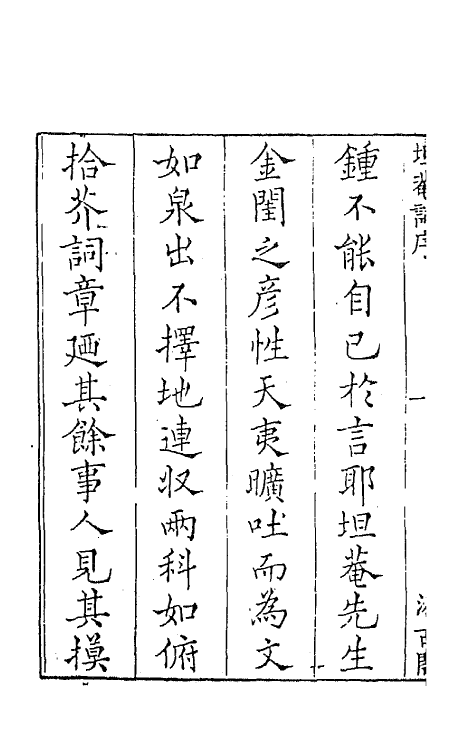 坦菴詞序
一
汲古閣
鍾不能自已於言耶坦菴先生
金閨之彦性天夷曠吐而為文
如泉出不擇地連收兩科如俯
拾芥詞章廼其餘事人見其摸